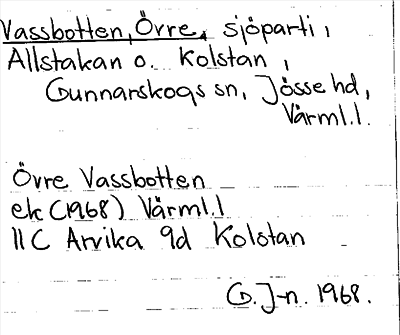 Vassbotten, Övre, sjöparti i
Allstakan o. Kolstan i
Gunnarskogs sn, Jösse hd,
Värml.l.
Övre Vassbotten
ek (1968) Värml.l
11 C Arvika 9d Kolstan
G. J-n. 1968.